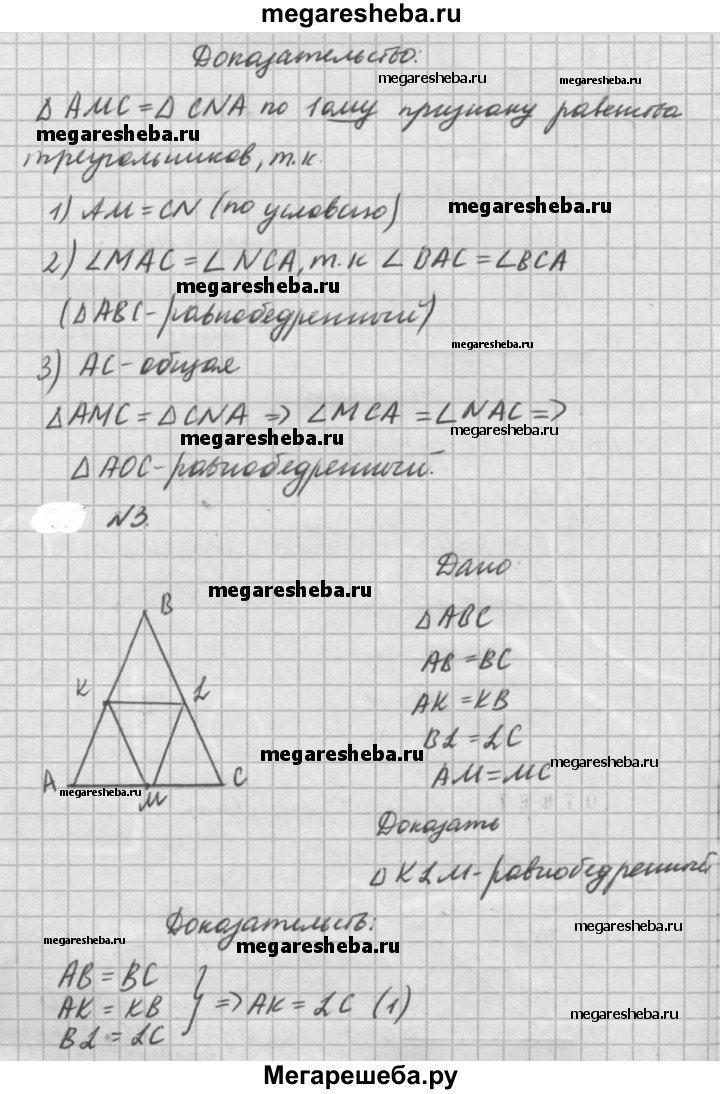 megaresheba.ru
Доказательство:
megaresheba.ru
megaresheba.ru
Δ AMC = Δ CNA по 1ому признаку равенства
megaresheba.ru
треугольников, т.к.
1) AM = CN (по условию)
megaresheba.ru
2) ∠MAC = ∠NCA, т.к ∠BAC = ∠BCA
megaresheba.ru
(ΔABC - равнобедренный)
megaresheba.ru
3) AC - общая
ΔAMC = ΔCNA => ∠MCA = ∠NAC =>
megaresheba.ru
megaresheba.ru
ΔAOC - равнобедренный.
N3.
Дано:
megaresheba.ru
B
ΔABC
AB = BC
K
L
AK = KB
BL = LC
megaresheba.ru
megaresheba.ru
AM = MC
A
C
megaresheba.ru
M
Доказать
ΔKLM - равнобедренный
Доказательсть:
megaresheba.ru
megaresheba.ru
megaresheba.ru
AB = BC
AK = KB } => AK = LC (1)
BL = LC
megaresheba.ru
Мегарешеба.ру